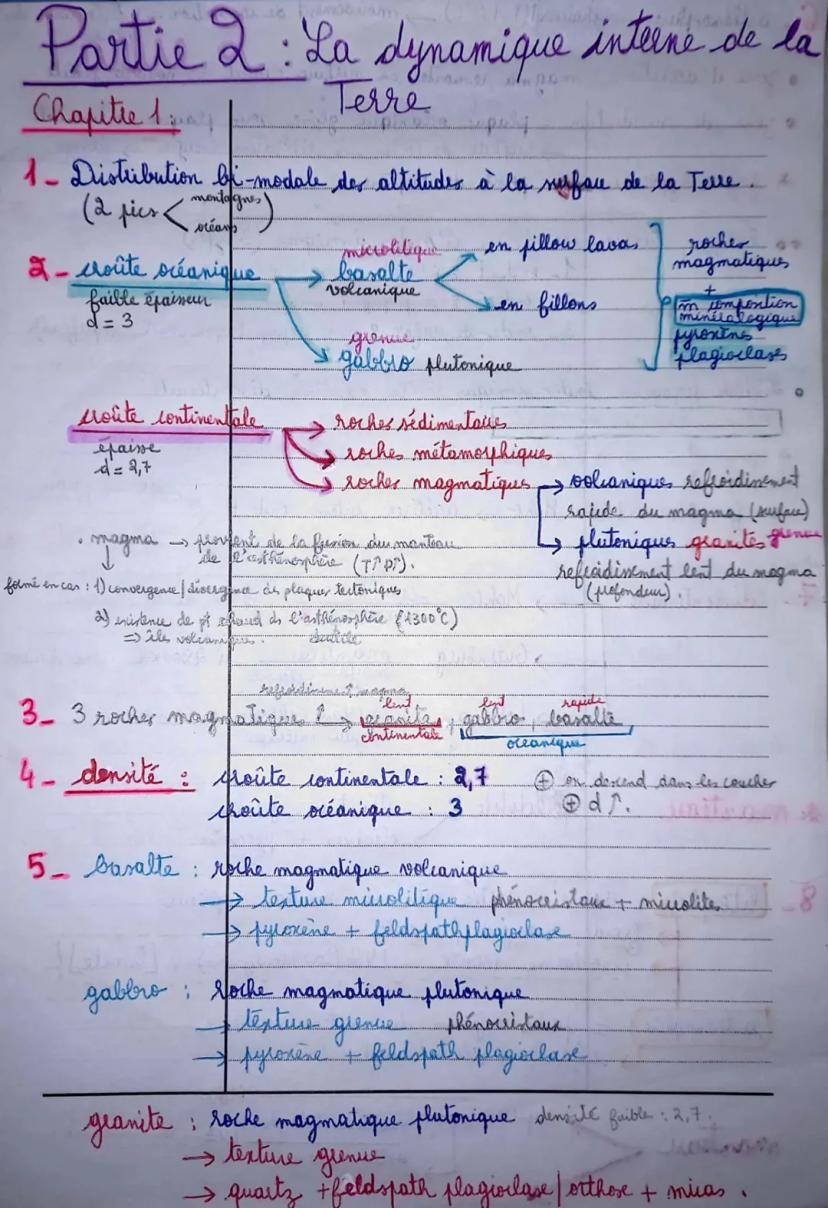 Partie 2 : La dynamique interne de la
Terre
Chapitre 1 :
1_ Distribution bi-modale des altitudes à la surface de la Terre.
(2 pics < montagnes
océans)
2_ croûte océanique → microlitique basalte volcanique → en pillow lavas
→ en fillons
faible épaisseur
d = 3
→ grenue gabbro plutonique
roches
magmatiques
+
m̄ composition
minéralogique
pyroxènes
plagioclases
croûte continentale → roches sédimentaires
épaisse → roches métamorphiques
d = 2,7 → roches magmatiques → volcaniques refroidissement
rapide du magma (surface)
→ plutoniques granites grenue
refroidissement lent du magma
(profondeur).
. magma → provient de la fusion du manteau
de l'asthénosphère (T↑ P↑).
↓
formé en cas : 1) convergence / divergence des plaques tectoniques
2) existence de pt chaud ds l'asthénosphère (1300°C)
ductile
⇒ îles volcaniques.
refroidissement magma
lent lent rapide
3_ 3 roches magmatiques → granite, gabbro, basalte
continentale océanique
4_ densité : croûte continentale : 2,7 ⊕ on descend dans les couches
croûte océanique : 3 ⊕ d ↑.
5_ basalte : roche magmatique volcanique
→ texture microlitique phénocristaux + microlites
→ pyroxène + feldspath plagioclase
gabbro : Roche magmatique plutonique
→ texture grenue phénocristaux
→ pyroxène + feldspath plagioclase
granite : roche magmatique plutonique densité faible : 2,7.
→ texture grenue
→ quartz + feldspath plagioclase / orthose + micas.